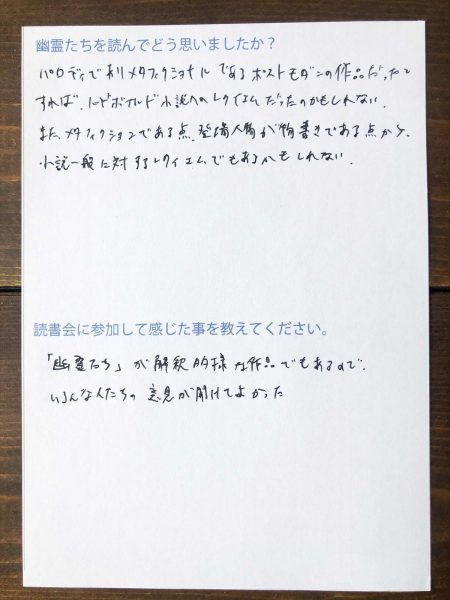 幽霊たちを読んでどう思いましたか?
パロディであリメタフィクショナルであるポストモダンの作品だったと
すれば、ハードボイルド小説へのレクイエムだったのかもしれない.
また、メタフィクションである点、登場人物が物書きである点から、
小説一般に対するレクイエムでもあるかもしれない.
読書会に参加して感じた事を教えてください。
「幽霊たち」が解釈的様な作品でもあるので.
いろんな人たちの意見が聞けてよかった